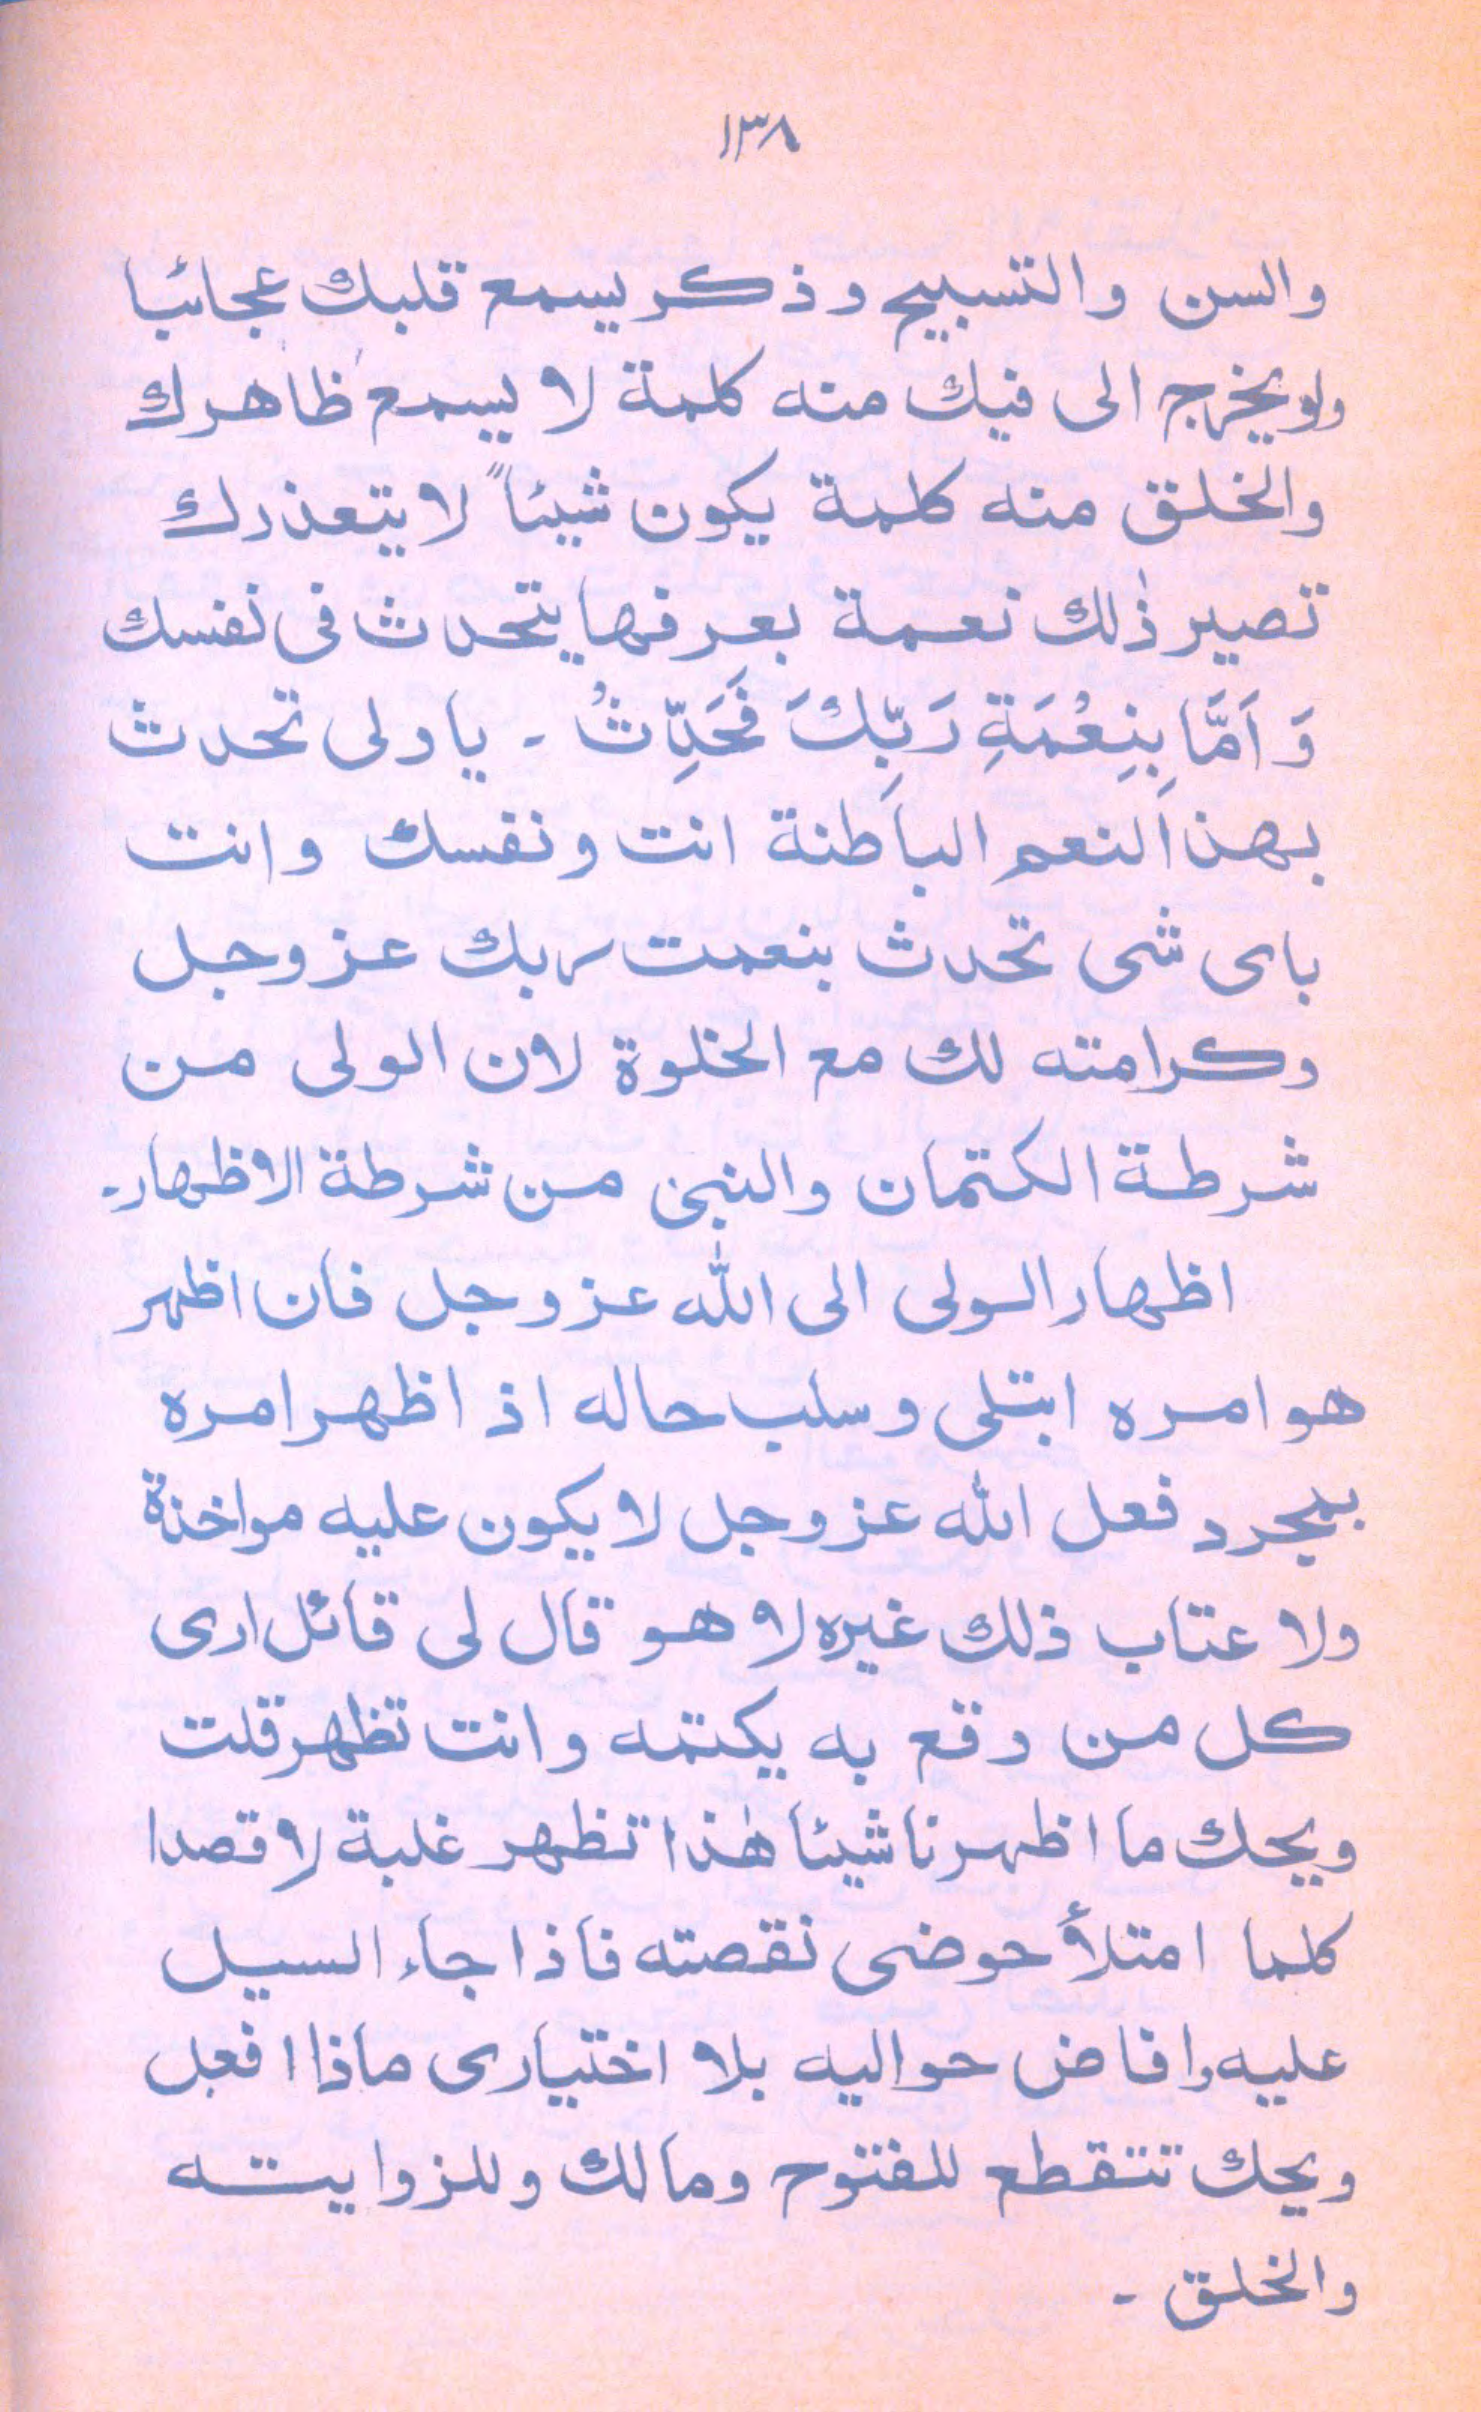 ١٣٨
والسن والتسبيح وذكر يسمع قلبك عجائبا
ولو يخرج الى فيك منه كلمة لا يسمع ظاهرك
والخلق منه كلمة يكون شيئاً لا يتعذرك
تصير ذٰلك نعمة بعرفها يتحدث فى نفسك
وَاَمَّا بِنِعْمَةِ رَبِّكَ فَحَدِّثْ ۔ يا ولى تحدث
بهذ النعم الباطنة انت ونفسك وانت
باى شى تحدث بنعمت ربك عز وجل
وكرامته لك مع الخلوة لان الولى من
شرطة الكتمان والنبى من شرطة الاظهار۔
اظهار الولى الى الله عز وجل فان اظهر
هو امره ابتلى وسلب حاله اذ اظهر امره
بمجرد فعل الله عز وجل لا يكون عليه مواخذة
ولا عتاب ذلك غيره لا هو قال لى قائل ارى
كل من وقع به يكتمه وانت تظهر قلت
ويحك ما اظهرنا شيئا هٰذا تظهر غلبة لا قصدا
كلما امتلأ حوضى نقصته فاذا جاء السيل
عليه وافاض حواليه بلا اختيارى ماذا افعل
ويحك تتقطع للفتوح ومالك وللزوايته
والخلق ۔